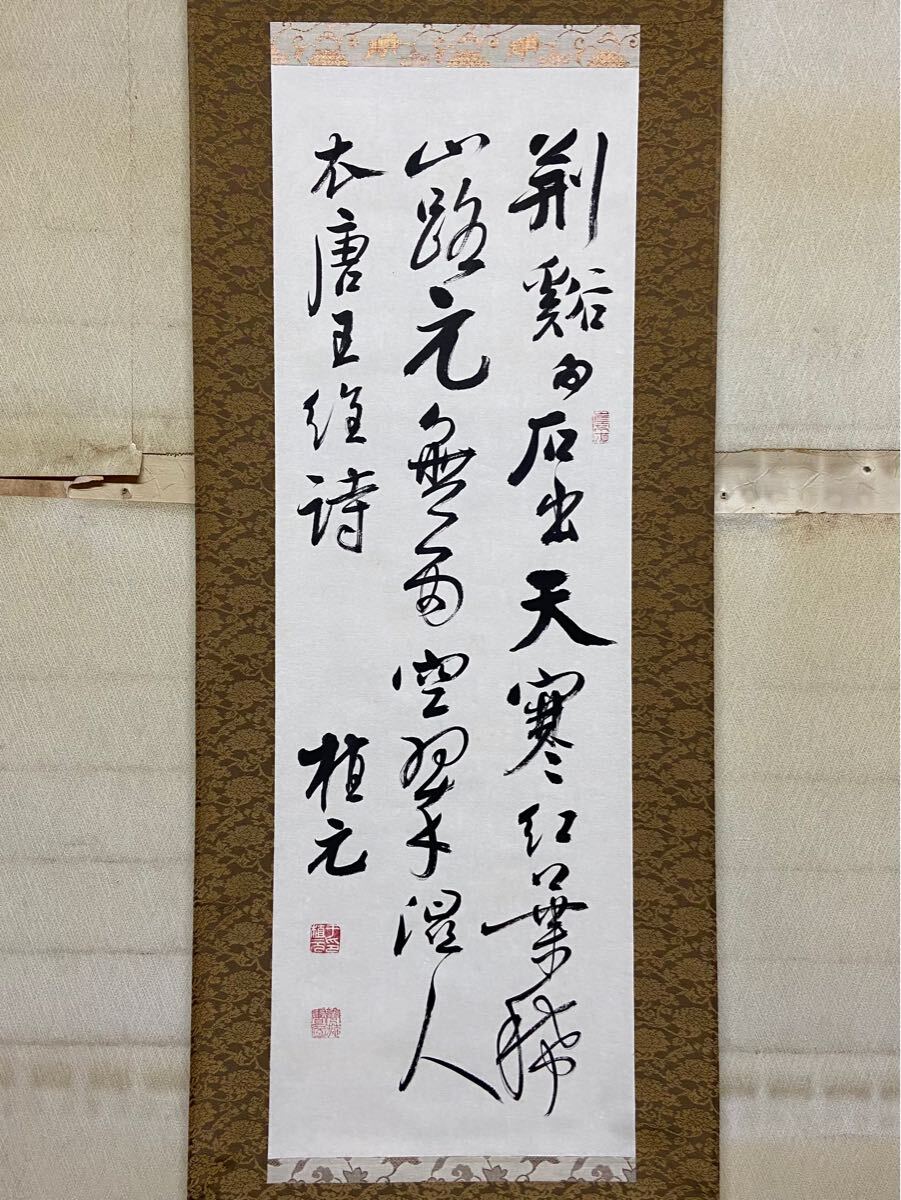 荆谿白石出天寒紅葉稀
山路元無雨空翠湿人
衣唐王維詩 植元